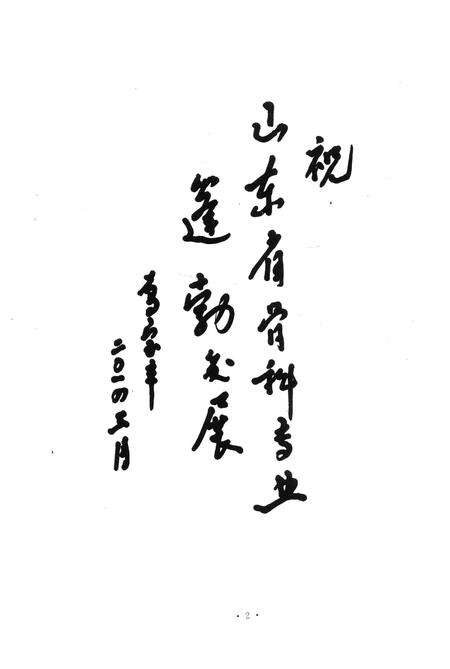 祝
山东省骨科专业
蓬勃发展
葛宝丰
二〇一四五月
·2·